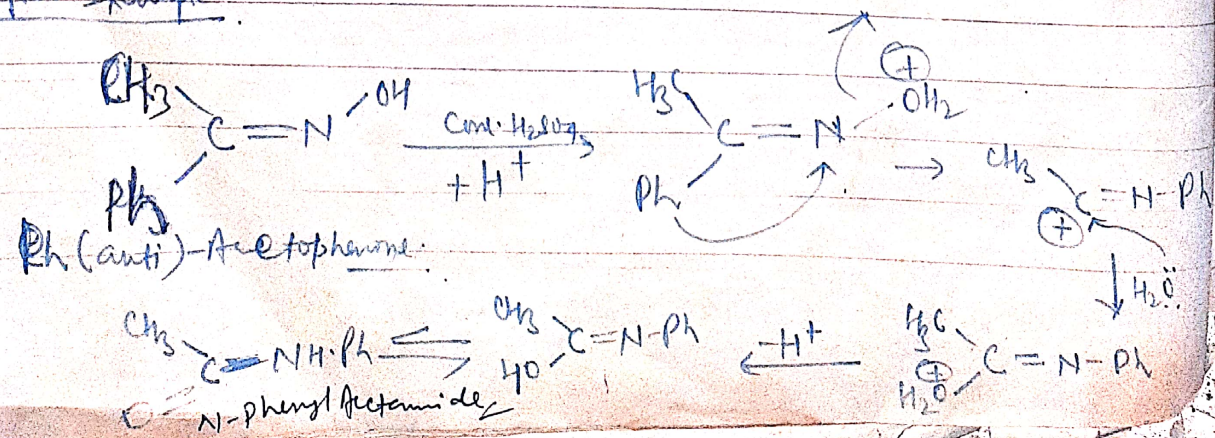 CH3 C=N OH
Ph
Conc. H2SO4
+H+
H3C C=N OH2 +
Ph
→
CH3 C=N-Ph +
Ph (anti)-Acetophenone.
↓ H2Ö
CH3 C-NH.Ph ⇌ CH3 C=N-Ph
O HO
-H+
H3C C=N-Ph
H2O +
N-Phenyl Acetamide